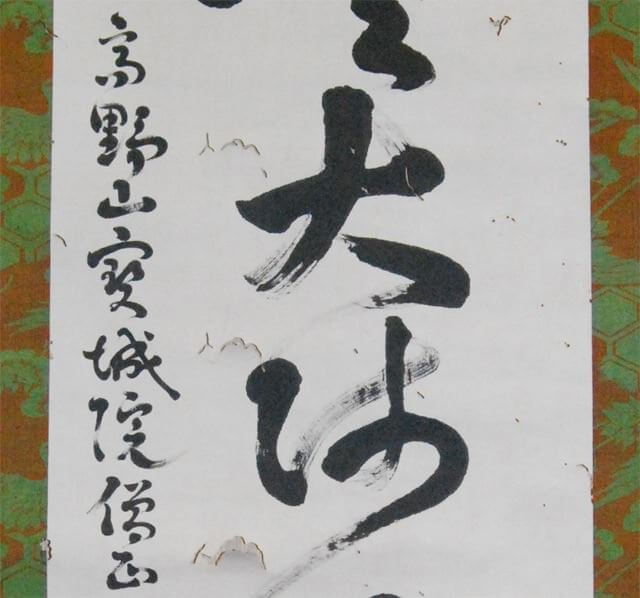 大師
高野山寶城院僧正